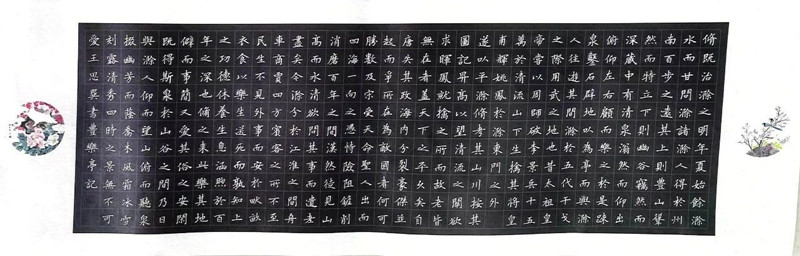 脩既治滁之明年夏始飲滁
水而甘問諸滁人得於州
南百步之近其上豐山聳
然而特立下則幽谷窈然而
深藏中有清泉滃然而仰出
俯仰左右顧而樂之於是疎
泉鑿石辟地以為亭而與滁
人往遊其間滁於五代干戈
之際用武之地也昔太祖皇
帝嘗以周師破李景兵十五
萬於清流山下生擒其將皇
甫暉姚鳳於滁東門之外
遂以平滁脩嘗考其山川按其
圖記昇高以望清流之關欲
求暉鳳就擒之所而故老皆
無在者蓋天下之平久矣自
唐失其政海内分裂豪傑並
起而爭所在為敵國者何可
勝數及宋受天命聖人出而
四海一向之憑恃險阻剗削
消磨百年之間漠然徒見山
高而水清欲問其事而遺老
盡矣今滁介於江淮之間舟
車商賈四方賓客之所不至
民生不見外事而安於畎畝
衣食以樂生送死而孰知上
之功德休養生息涵煦於百
年之深也脩之來此樂其地
僻而事簡又愛其俗之安閒
既得斯泉於山谷之間乃日
與滁人仰而望山俯而聽泉
掇幽芳而蔭喬木風霜冰雪
刻露清秀四時之景無不可
愛王思書豐樂亭記